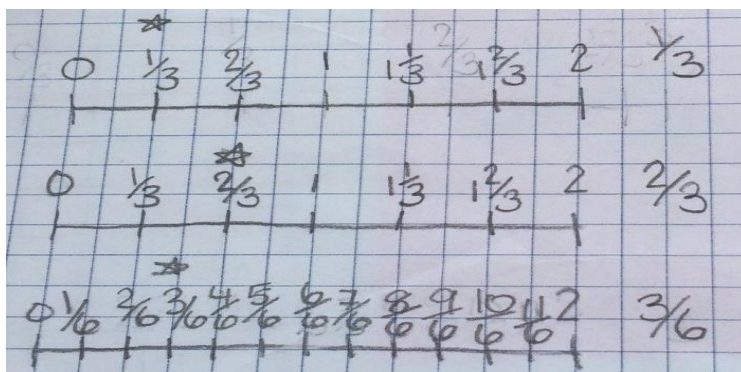 0 1/3 2/3 1 1 1/3 1 2/3 2 1/3
0 1/3 2/3 1 1 1/3 1 2/3 2 2/3
0 1/6 2/6 3/6 4/6 5/6 6/6 7/6 8/6 9/6 10/6 11/6 2 3/6